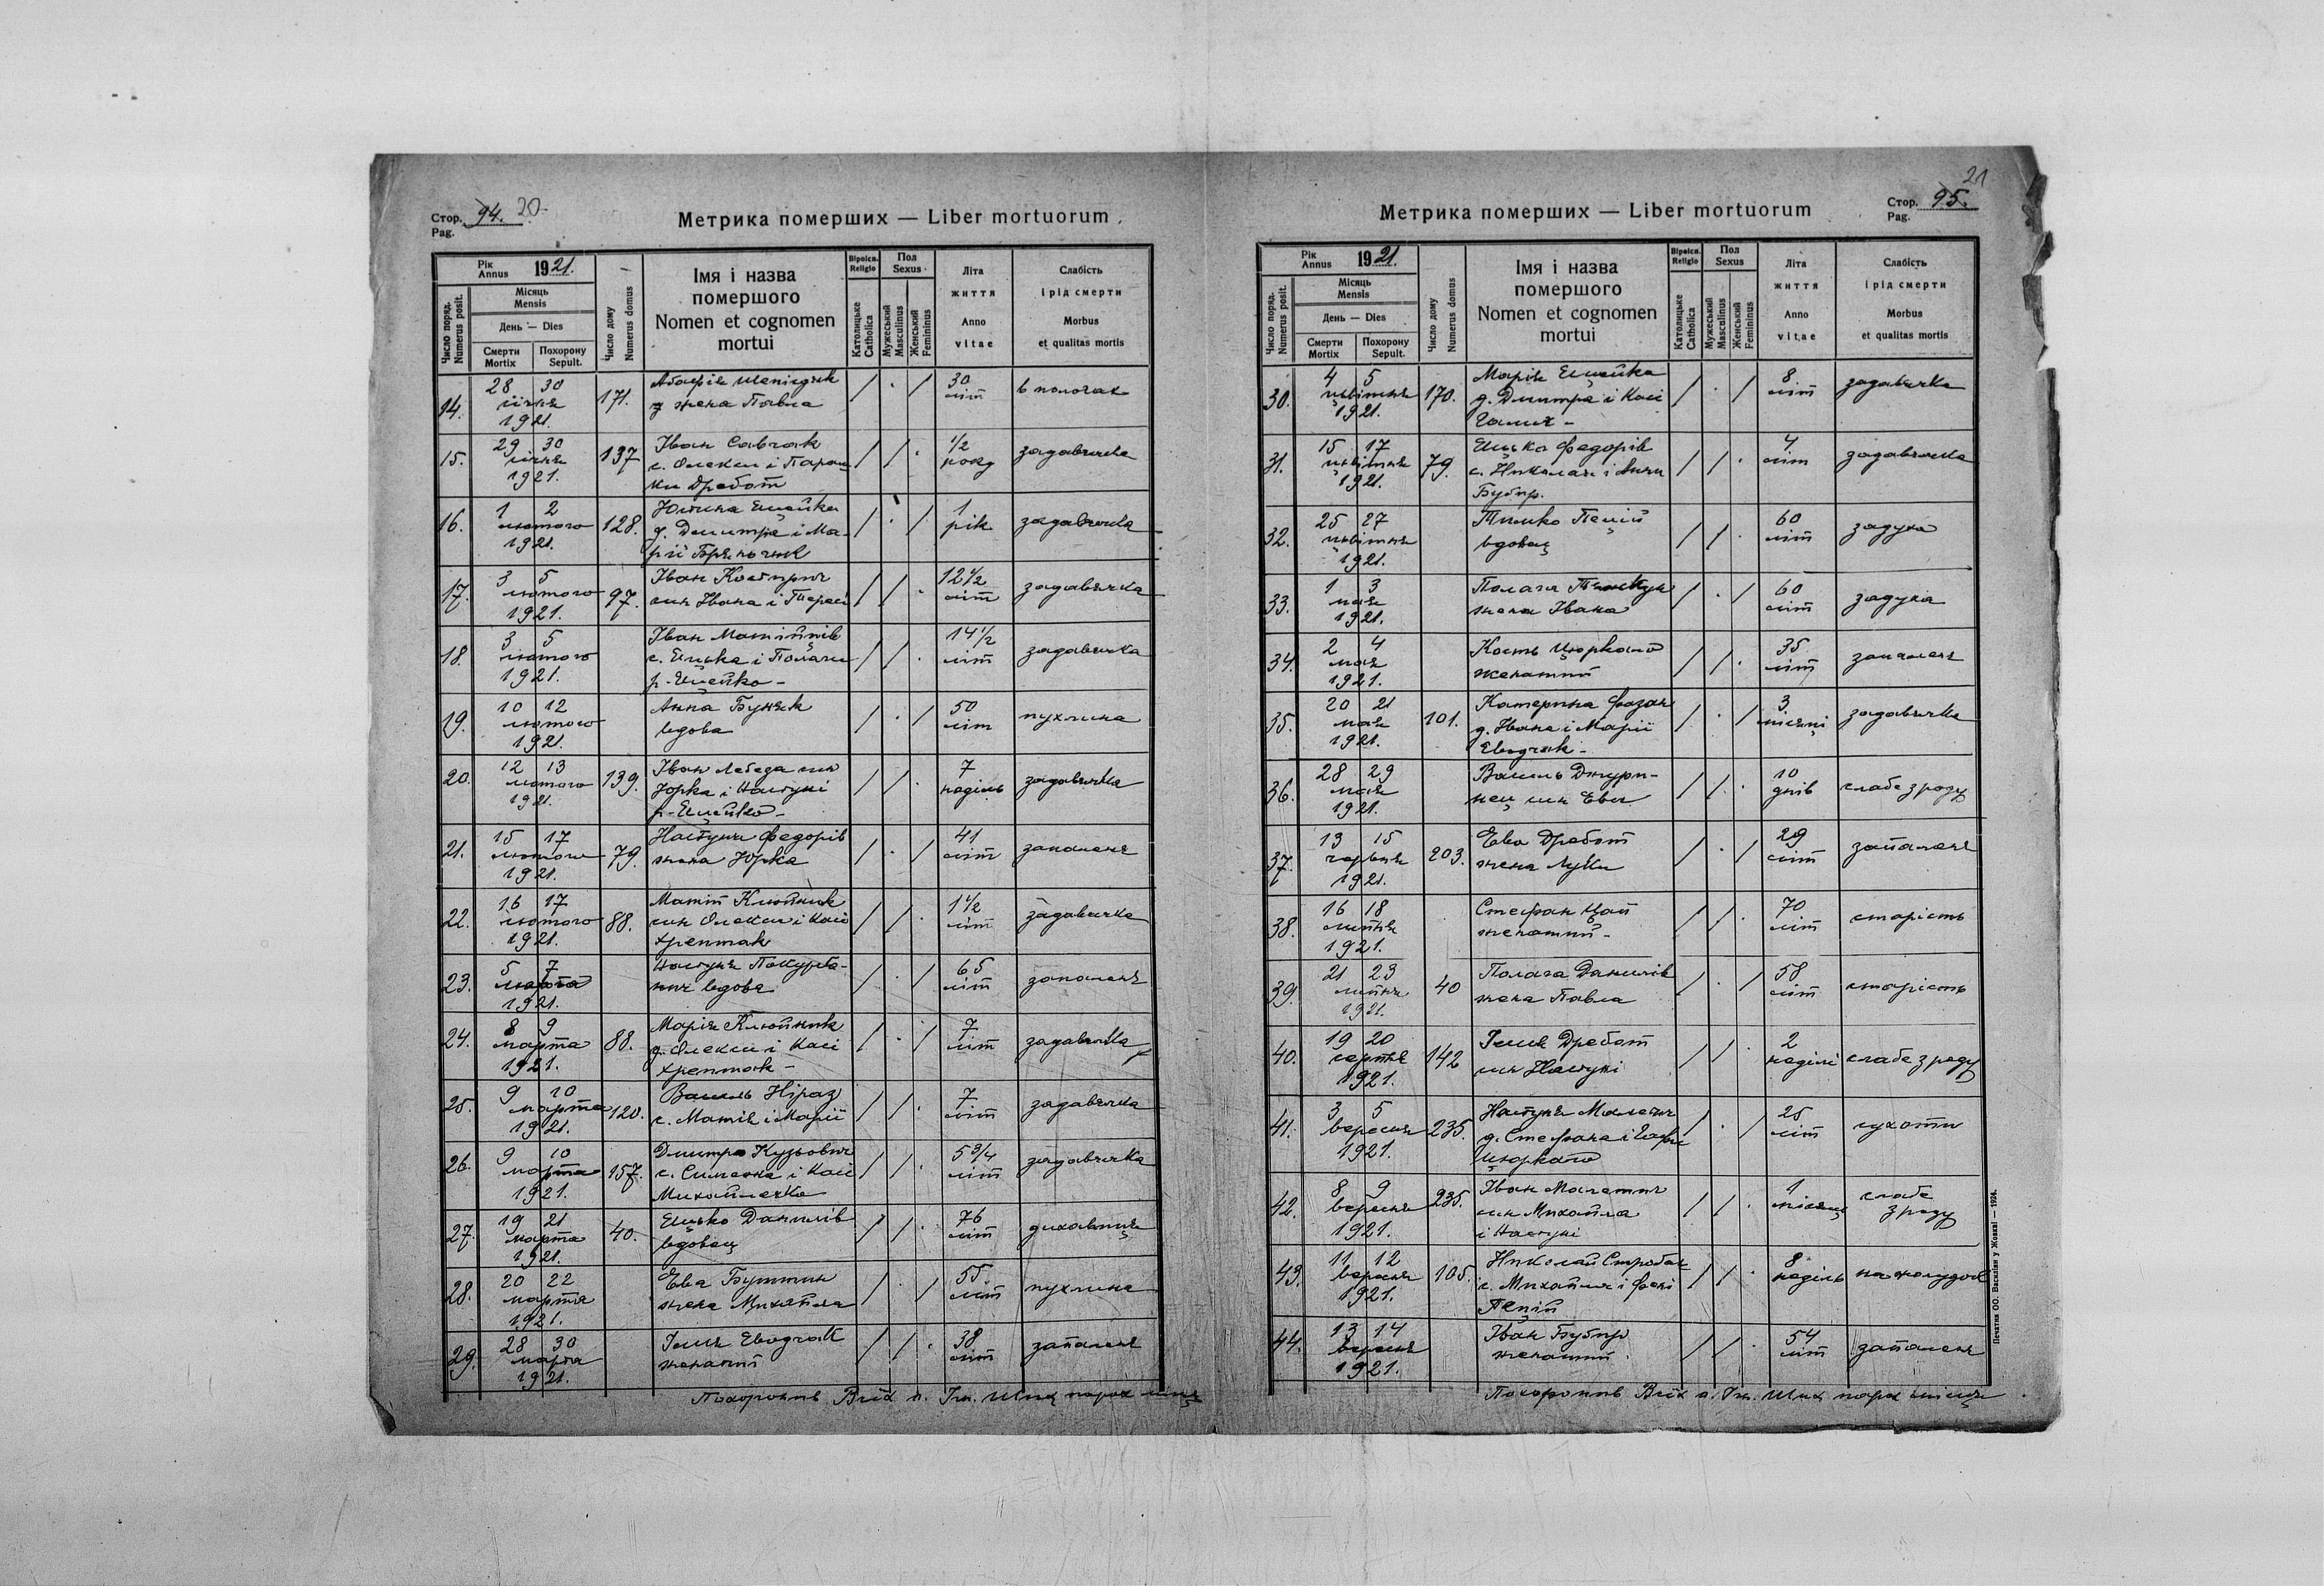 Стор. 94. 20.
Pag.
Метрика померших — Liber mortuorum
Рік
Annus
1921.
Число поряд.
Numerus posit.
Місяць
Mensis
День — Dies
Смерти
Mortix
Похорону
Sepult.
Число дому
Numerus domus
Імя і назва
помершого
Nomen et cognomen
mortui
Віроісп.
Religio
Католицьке
Catholica
Пол
Sexus
Мужеський
Masculinus
Женський
Femininus
Літа
життя
Anno
vitae
Слабість
і рід смерти
Morbus
et qualitas mortis
14. 28 30 171. / · / 30
січня жена Павла літ
1921.
15. 29 30 137 Іван Савчак / / · 1/2 задавячка
січня с. Олекси і Параш- року
1921. ки Дработ
16. 1 2 128. / · / 1 задавячка
лютого д. Дмитра і Ма- рік
1921. рії
17. 3 5 97. Іван / / · 12 1/2 задавячка
лютого син Івана і літ
1921.
18. 3 5 Іван / / · 14 1/2 задавячка
лютого с. Єцька і Полагни літ
1921.
19. 10 12 Анна Буняк / · / 50 пухлина
лютого вдова літ
1921.
20. 12 13 139. Іван Лебеда син / / · 7 задавячка
лютого Юрка і Настуні неділь
1921.
21. 15 17 79. Настуня Федорів / · / 41 запаленя
лютого жена Юрка літ
1921.
22. 16 17 88. Матій Клюйник / / · 1 1/2 задавячка
лютого син Олекси і Касі літ
1921. Хрептак
23. 5 7 Настуня / · / 65 запаленя
марта вдова літ
1921.
24. 8 9 88. Марія Клюйник / · / 7 задавячка
марта д. Олекси і Касі літ
1921. Хрептак -
25. 9 10 120. ВасильНіраз / / · 7 задавячка
марта с. Матія і Марії літ
1921.
26. 9 10 157. Дмитро Кузьович / / · 5 3/4 задавячка
марта с. Симеона і Касі літ
1921. Михайлечко
27. 19 21 40. Єцько Данилів / / · 76 дихавиця
марта вдовец літ
1921.
28. 20 22 Ева / · / 55 пухлина
марта жена Михайла літ
1921.
29. 28 30 Ілия Евдчак / / · 38 запаленя
марта женатий літ
1921.
Похоронив Всіх о. Ів. Шиц парох місц
21
Стор. 95.
Pag.
Метрика померших — Liber mortuorum
Рік
Annus
1921.
Число поряд.
Numerus posit.
Місяць
Mensis
День — Dies
Смерти
Mortix
Похорону
Sepult.
Число дому
Numerus domus
Імя і назва
помершого
Nomen et cognomen
mortui
Віроісп.
Religio
Католицьке
Catholica
Пол
Sexus
Мужеський
Masculinus
Женський
Femininus
Літа
життя
Anno
vitae
Слабість
і рід смерти
Morbus
et qualitas mortis
30. 4 5 170. Марія / · / 8 задавячка
цвітня д. Дмитра і Касі літ
1921.
31. 15 17 79. Єцко Федорів / / · 4 задавячка
цвітня с. Николая і Анни літ
1921. Бубнр.
32. 25 27 Тимко Пецій / / · 60 задуха
цвітня вдовец літ
1921.
33. 1 3 Полага / · / 60 задуха
мая жена Івана літ
1921.
34. 2 4 Кость Цюркало / / · 35 запаленя
мая женатий літ
1921.
35. 20 21 101. Катерина Фазан / · / 3 задавячка
мая д. Івана і Марії місяці
1921. Евдчак -
36. 28 29 Василь Джури- / / · 10 слабе з роду
мая нец син Еви днів
1921.
37. 13 15 203. Ева Дработ / · / 29 запаленя
червня жена Луки літ
1921.
38. 16 18 Стефан Цап / / · 70 старість
липня женатий - літ
1921.
39. 21 23 40 Полага Данилів / · / 58 старість
липня жена Павла літ
1921.
40. 19 20 142 Ілия Дработ / / · 2 слабе з роду
серпня син Настуні неділі
1921.
41. 3 5 235. Настуня / · / 25 сухоти
вересня д. Стефана і літ
1921. Цюркало
42. 8 9 235. Іван / / · 1 слабе
вересня син Михайла місяць з роду
1921. і Настуні
43. 11 12 105. Николай / / · 8 на жолудок
вересня с. Михайла і Фені неділь
1921. Пецій
44. 13 14 Іван Бубнр / / · 54 запаленя
вересня женатий літ
1921.
Похоронив Всіх о. Ів. Шиц парох місця
Печатня ОО. Василіян у Жовкві — 1926.